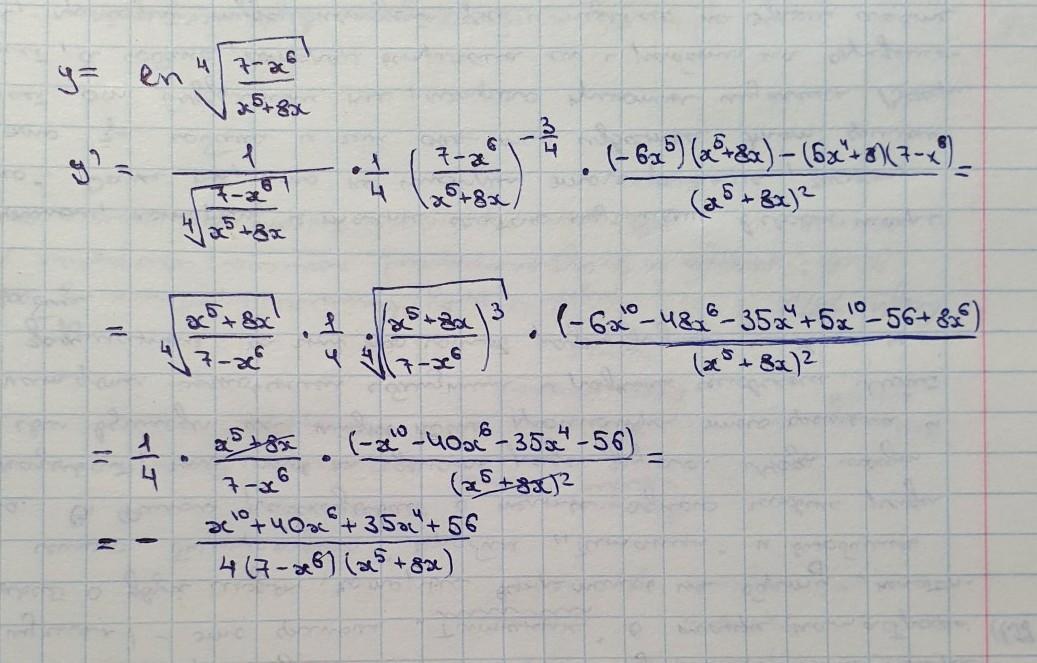 y = ln ⁴√((7-x⁶)/(x⁵+8x))
y' = 1/⁴√((7-x⁶)/(x⁵+8x)) · 1/4 ((7-x⁶)/(x⁵+8x))^(-3/4) · ((-6x⁵)(x⁵+8x)-(5x⁴+8)(7-x⁶))/(x⁵+8x)² =
= ⁴√((x⁵+8x)/(7-x⁶)) · 1/4 · ⁴√(((x⁵+8x)/(7-x⁶))³) · (-6x¹⁰-48x⁶-35x⁴+5x¹⁰-56+8x⁶)/(x⁵+8x)²
= 1/4 · (x⁵+8x)/(7-x⁶) · (-x¹⁰-40x⁶-35x⁴-56)/(x⁵+8x)² =
= - (x¹⁰+40x⁶+35x⁴+56)/(4(7-x⁶)(x⁵+8x))